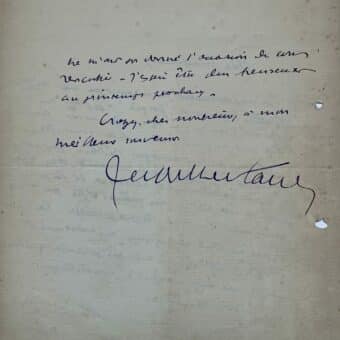 ne m'ont pas donné l'occasion de vous
rencontrer. J'espère être plus heureux
au printemps prochain.
Croyez, cher monsieur, à mon
meilleur souvenir